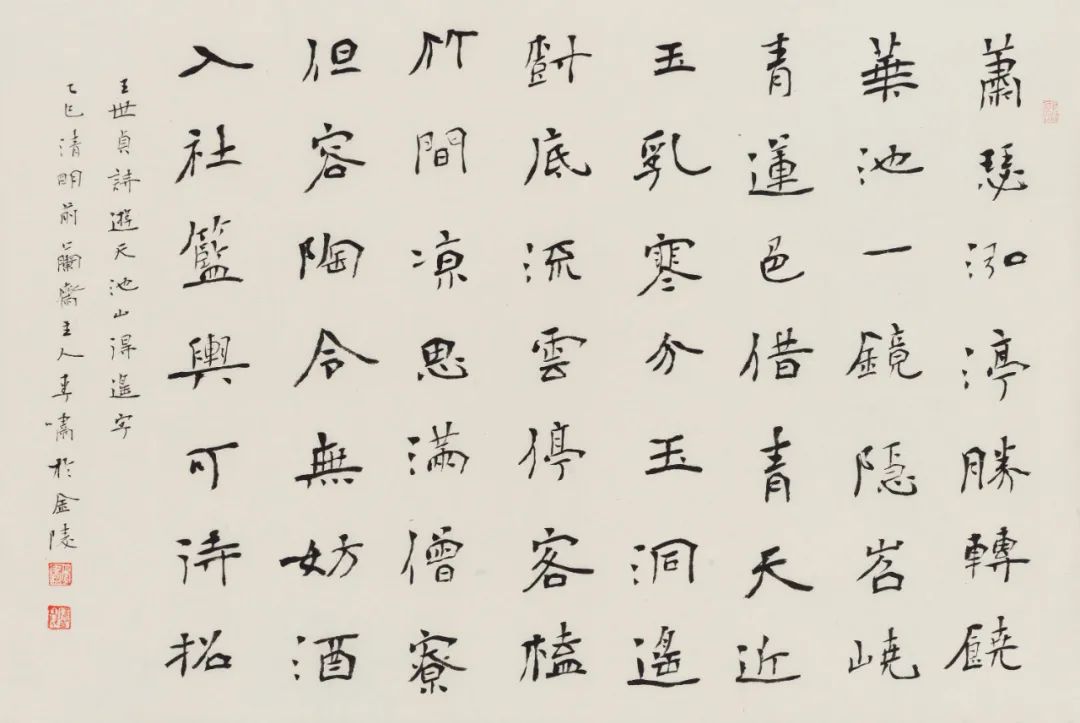 蕭瑟泓渟勝轉饒
華池一鏡隱岧嶢
青蓮色借青天近
玉乳寒分玉洞遙
樹底流雲停客榼
竹間凉思滿僧寮
但容陶令無妨酒
入社籃輿可待招
王世貞詩遊天池山得遙字
乙巳清明前蘭齋主人春嘯於金陵